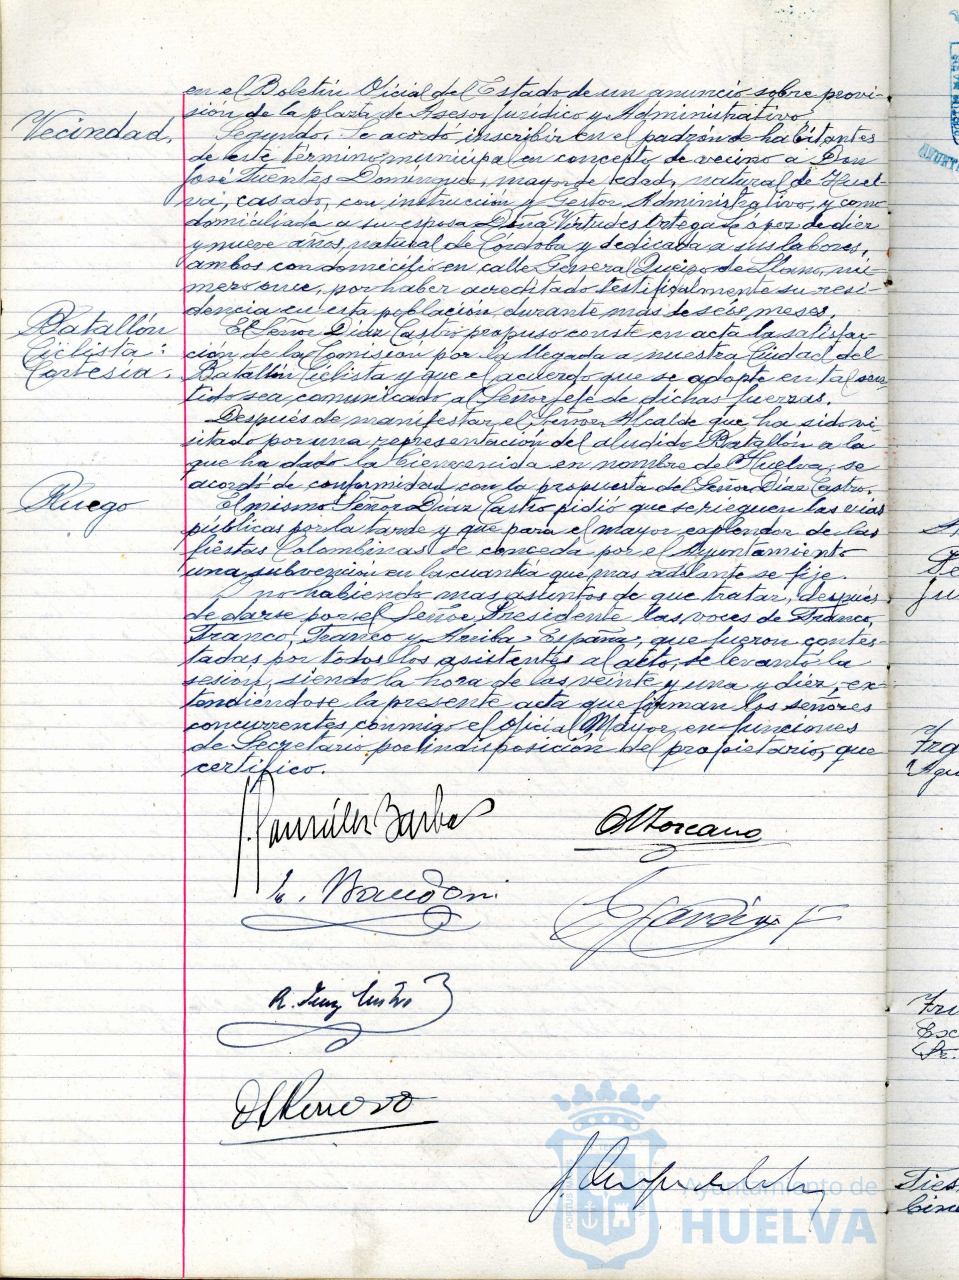 en el Boletín Oficial del Estado de un anuncio sobre provi-
sión de la plaza de Asesor Jurídico y Administrativo.
Vecindad.
Segundo. Se acordó inscribir en el padrón de habitantes
de este término municipal en concepto de vecino a Don
José Fuentes Domínguez, mayor de edad, natural de Huel-
va, casado, con instrucción y Gestor Administrativo, y como
domiciliada a su esposa Doña Virtudes Ortega López de diez
y nueve años, natural de Córdoba y dedicada a sus labores,
ambos con domicilio en calle General Queipo de Llano, nú-
mero once, por haber acreditado testificalmente su resi-
dencia en esta población, durante más de seis meses.
Batallón
Ciclista:
Cortesía.
El Señor Díaz Castro propuso conste en acta la satisfac-
ción de la Comisión por la llegada a nuestra Ciudad del
Batallón Ciclista y que el acuerdo que se adopte en tal sen-
tido sea comunicado al Señor Jefe de dichas fuerzas.
Después de manifestar el Señor Alcalde que ha sido vi-
sitado por una representación del aludido Batallón a la
que ha dado la bienvenida en nombre de Huelva, se
acordó de conformidad con la propuesta del Señor Díaz Castro.
Ruego
El mismo Señor Díaz Castro pidió que se rieguen las vías
públicas por la tarde y que para el mayor esplendor de las
fiestas Colombinas se conceda por el Ayuntamiento
una subvención en la cuantía que mas adelante se fije.
Y no habiendo mas asuntos de que tratar, después
de darse por el Señor Presidente las voces de Franco,
Franco, Franco y Arriba España, que fueron contes-
tadas por todos los asistentes al acto, se levantó la
sesión, siendo la hora de las veinte y una y diez, ex-
tendiéndose la presente acta que firman los señores
concurrentes conmigo el Oficial Mayor, en funciones
de Secretario por indisposición del propietario, que
certifico.
González Barba
Ayuntamiento de
HUELVA